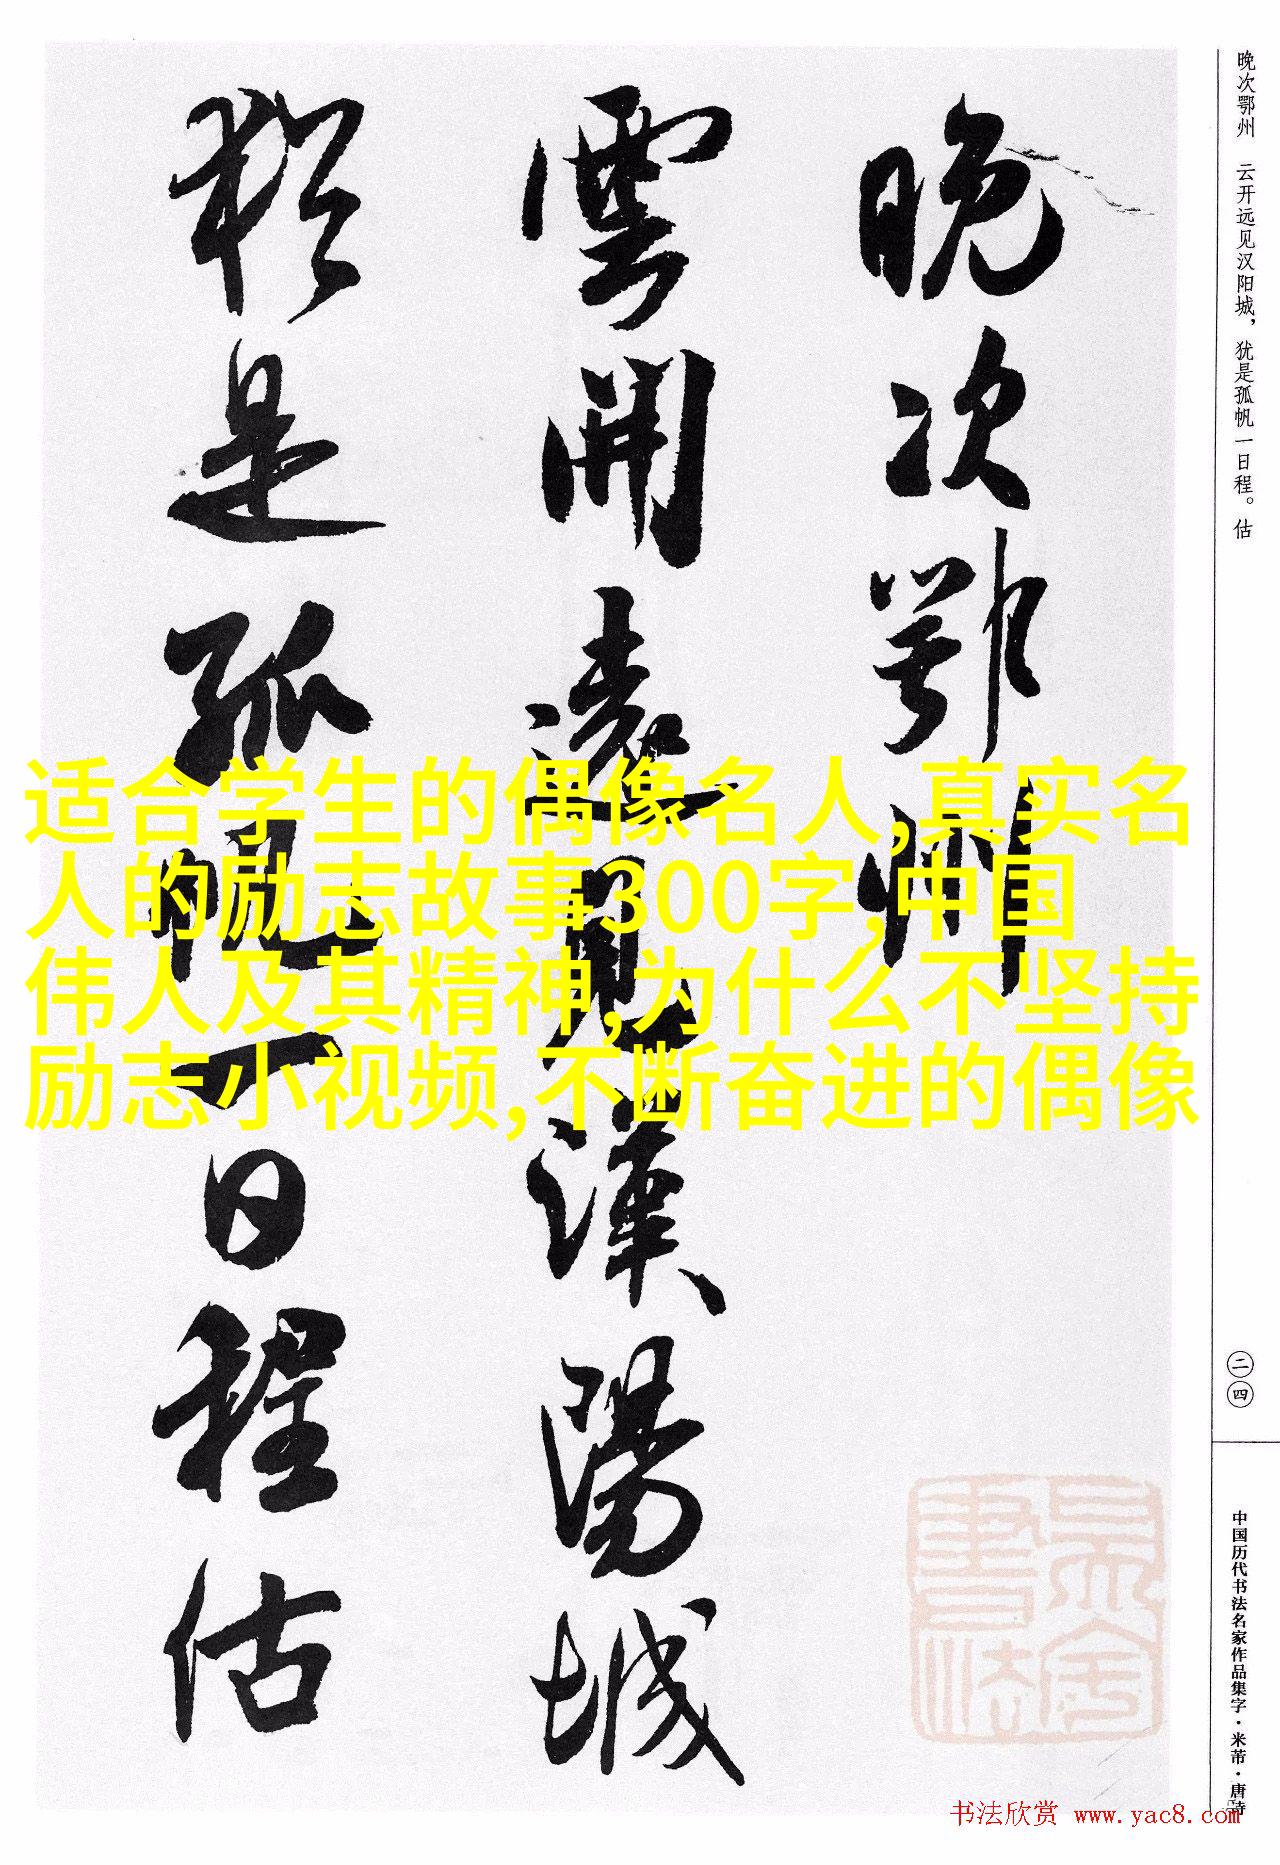 晚次鄂州 云开远见汉阳城，犹是孤帆一日程。估
晚次鄂州
雲開遠見漢陽城
猶是孤帆一日程估
适合学生的偶像名人,真实名
人的励志故事300字,中国
伟人及其精神,为什么不坚持
励志小视频,不断奋进的偶像
二四
中国历代书法名家作品集字·米芾·唐诗
书法欣赏 www.yac8.com